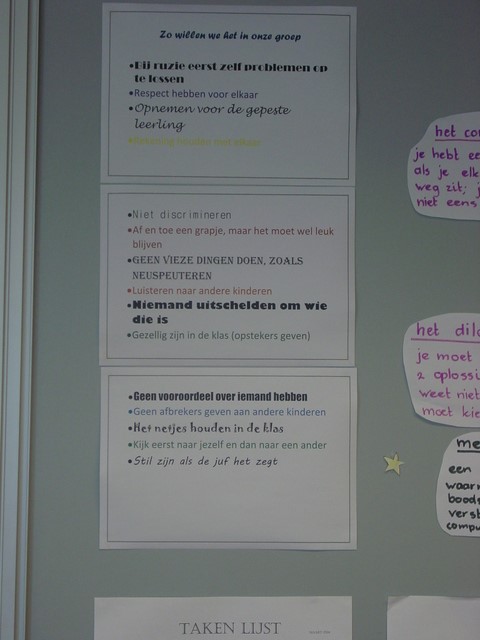 Zo willen we het in onze groep
•Bij ruzie eerst zelf problemen op
te lossen
•Respect hebben voor elkaar
•Opnemen voor de gepeste
leerling
•Rekening houden met elkaar
•Niet discrimineren
•Af en toe een grapje, maar het moet wel leuk
blijven
•GEEN VIEZE DINGEN DOEN, ZOALS
NEUSPEUTEREN
•Luisteren naar andere kinderen
•Niemand uitschelden om wie
die is
•Gezellig zijn in de klas (opstekers geven)
•Geen vooroordeel over iemand hebben
•Geen afbrekers geven aan andere kinderen
•Het netjes houden in de klas
•Kijk eerst naar jezelf en dan naar een ander
•Stil zijn als de juf het zegt
TAKEN LIJST
het co
je hebt ee
als je elk
weg zit; j
niet eens
het dil
je moet
2 oplossi
weet niet
moet kie
me
een
waar
bood
verst
compu